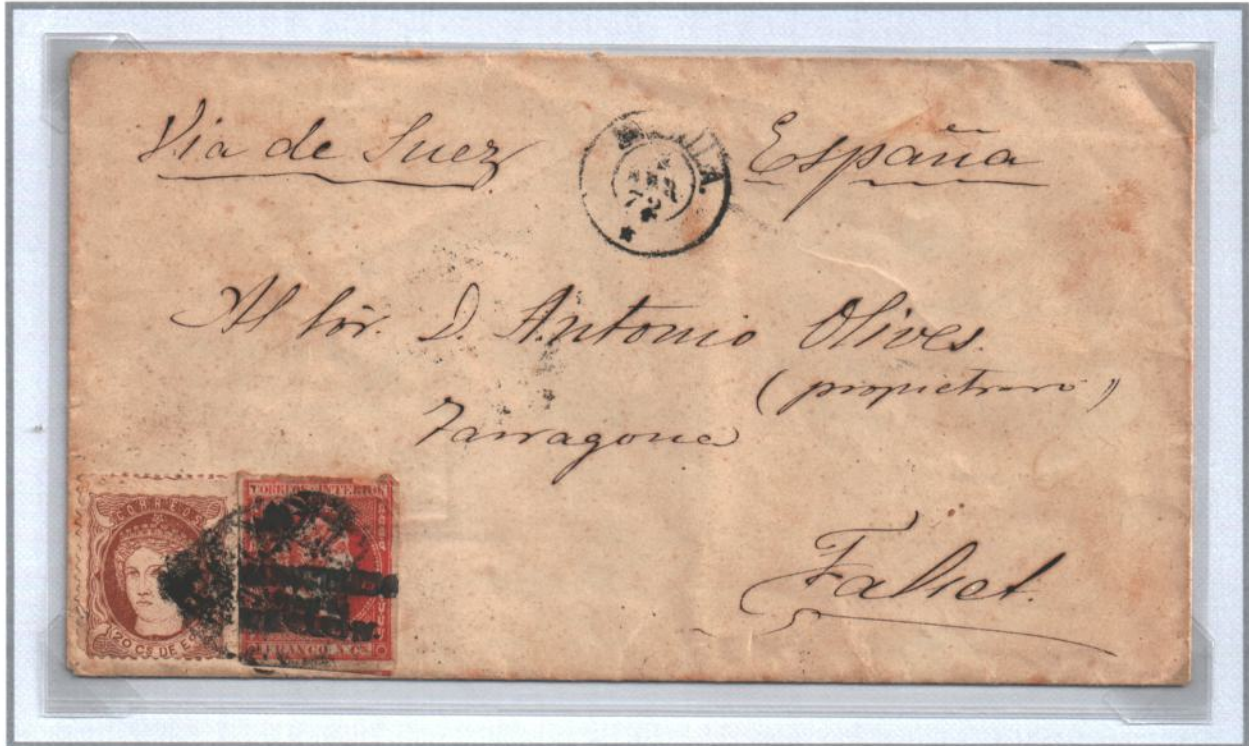 Via de Suez
España
MANILA.
72
Al Sór. D. Antonio Olives.
(propietraro)
Tarragona
Falset.
CORREOS
20 Cs DE E
CORREOS INTERIOR
FRANCO